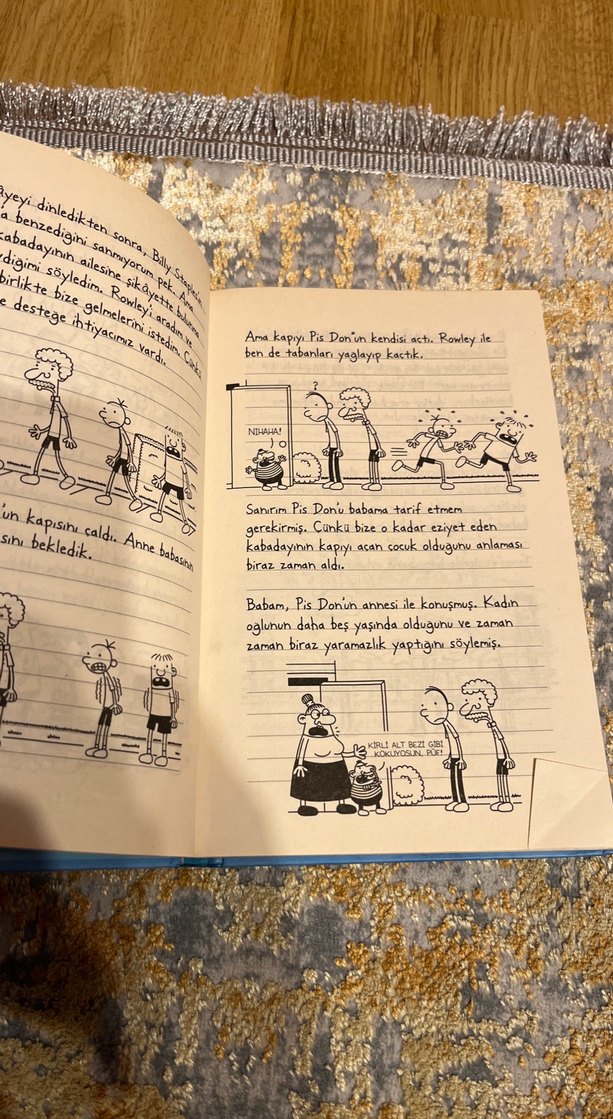 âyeyi dinledikten sonra, Billy Staples'ın
a benzediğini sanmıyorum pek. Ama
kabadayının ailesine şikâyette bulunma
diğimi söyledim. Rowley'i aradım ve
birlikte bize gelmelerini istedim. Çünkü
e desteğe ihtiyacımız vardı.
'ün kapısını çaldı. Anne babasının
sını bekledik.
Ama kapıyı Pis Don'un kendisi açtı. Rowley ile
ben de tabanları yağlayıp kaçtık.
?
NIHAHA!
Sanırım Pis Don'u babama tarif etmem
gerekirmiş. Çünkü bize o kadar eziyet eden
kabadayının kapıyı açan çocuk olduğunu anlaması
biraz zaman aldı.
Babam, Pis Don'un annesi ile konuşmuş. Kadın
oğlunun daha beş yaşında olduğunu ve zaman
zaman biraz yaramazlık yaptığını söylemiş.
KİRLİ ALT BEZİ GİBİ
KOKUYOSUN, PÜF!